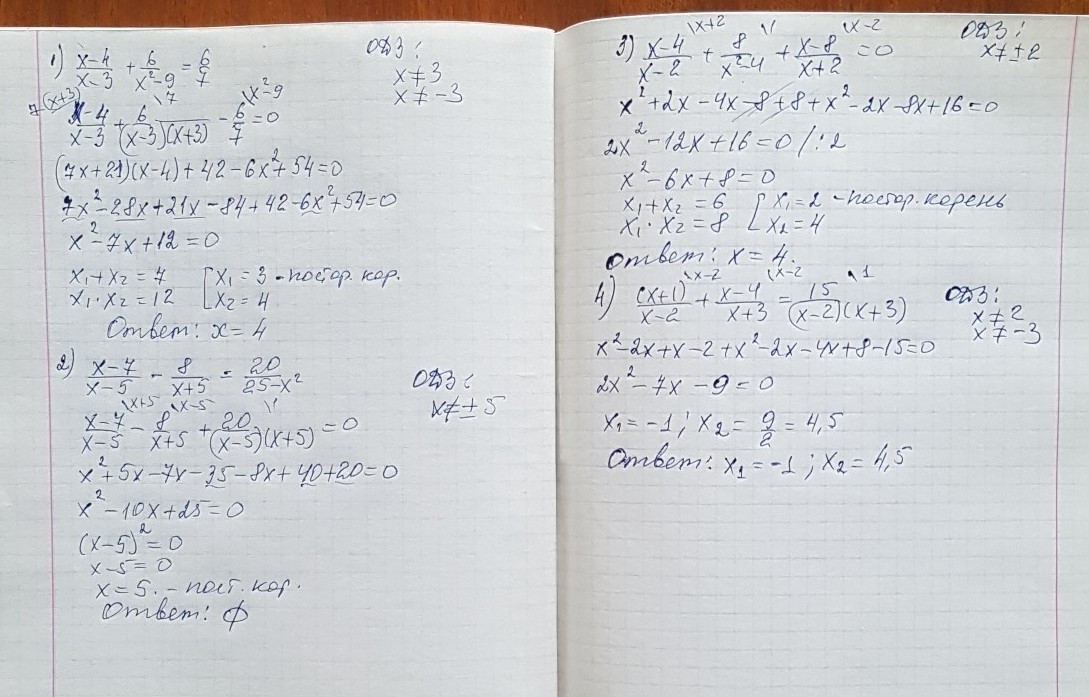 1) (x-4)/(x-3) + 6/(x²-9) = 6/7
ОДЗ:
x≠3
x≠-3
7(x+3) \7 \x²-9
(x-4)/(x-3) + 6/((x-3)(x+3)) - 6/7 = 0
(7x+21)(x-4)+42-6x²+54=0
7x²-28x+21x-84+42-6x²+54=0
x²-7x+12=0
x₁+x₂=7 [x₁=3 - постор. кор.
x₁·x₂=12 [x₂=4
Ответ: x=4
2) (x-7)/(x-5) - 8/(x+5) = 20/(25-x²)
ОДЗ:
x≠±5
\x+5 \x-5 \1
(x-7)/(x-5) - 8/(x+5) + 20/((x-5)(x+5)) = 0
x²+5x-7x-35-8x+40+20=0
x²-10x+25=0
(x-5)²=0
x-5=0
x=5. - пост. кор.
Ответ: ∅
\x+2 \1 \x-2
3) (x-4)/(x-2) + 8/(x²-4) + (x-8)/(x+2) = 0
ОДЗ:
x≠±2
x²+2x-4x-8+8+x²-2x-8x+16=0
2x²-12x+16=0 /:2
x²-6x+8=0
x₁+x₂=6 [x₁=2 - постор. корень
x₁·x₂=8 [x₂=4
Ответ: x=4.
\x-2 \x-2 \1
4) (x+1)/(x-2) + (x-4)/(x+3) = 15/((x-2)(x+3))
ОДЗ:
x≠2
x≠-3
x²-2x+x-2+x²-2x-4x+8-15=0
2x²-7x-9=0
x₁=-1; x₂=9/2=4,5
Ответ: x₁=-1; x₂=4,5